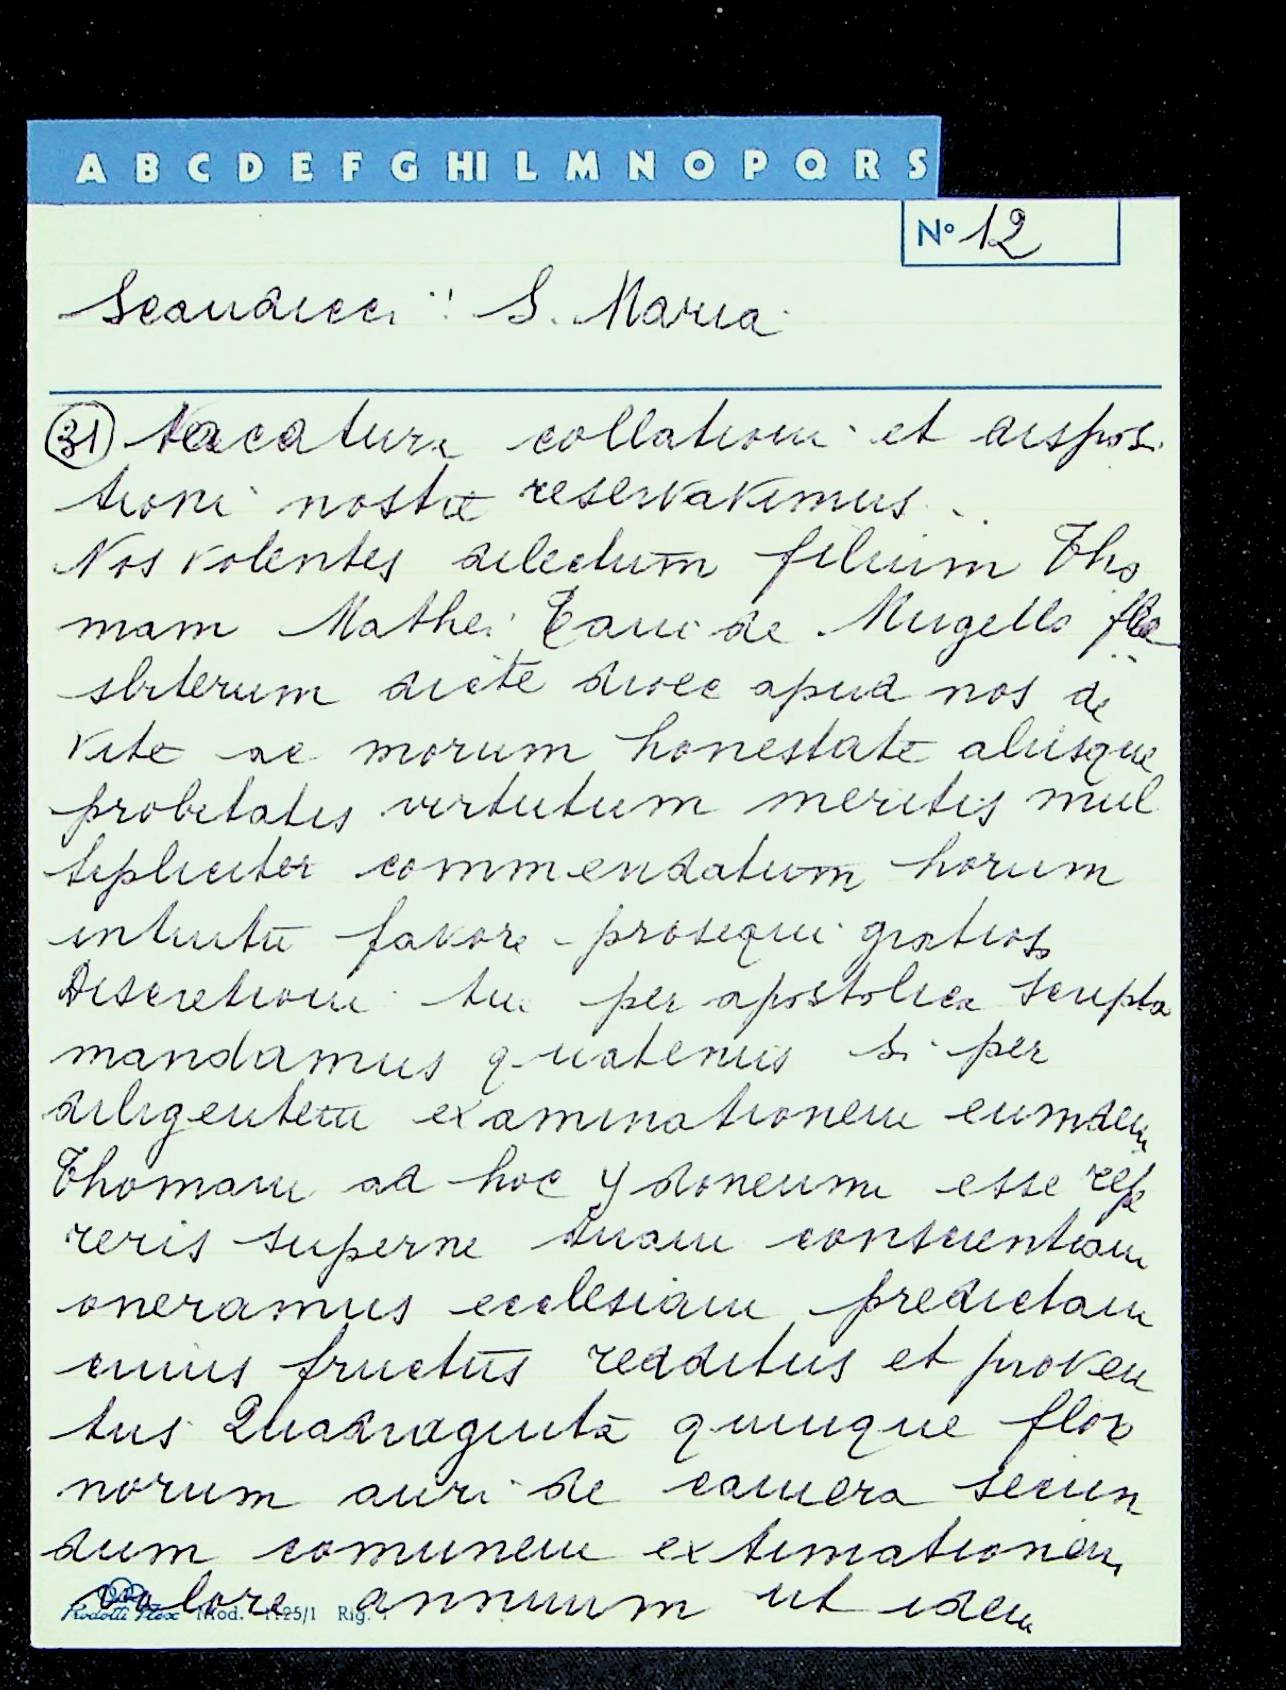 A B C D E F G HI L M N O P Q R S
N° 12
Scandicci S. Maria
31 Vacatura collationi et disposi
tioni nostre reservavimus.
Nos volentes dilectum filium Tho
mam Mathei de Mugello
sbiterum dicte dioec apud nos de
vite ac morum honestate aliisque
probitatis virtutum meritis mul
tipliciter commendatum horum
intuitu favore prosequi gratioso
Discretioni tue per apostolica scripta
mandamus quatenus si per
diligentem examinationem eumdem
Thomam ad hoc ydoneum esse reppe
reris superne tuam conscientiam
oneramus ecclesiam predictam
cuius fructus redditus et proven
tus Quadraginta quinque flore
norum auri de camera secun
dum comunem extimationem
valore annuum ut idem
Mod. 1125/1 Rig.